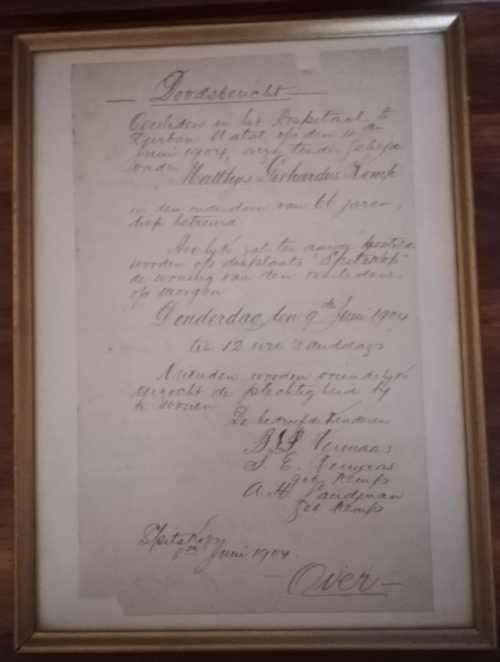 Doodsbericht
Overleden in het Hospitaal te
Durban Natal op den
Juni 1904, onze teder geliefde
vader
Matthys Gerhardus Kemp
in den ouderdom van 66 jaren,
diep betreurd.
Het lyk zal ter aarde besteld
worden op de plaats "Spitskop"
de woning van den overledene
op morgen
Donderdag den 9de Juni 1904
ten 12 ure 's middags
Vrienden worden vriendelyk
verzocht de plechtigheid by
te wonen
De bedroefde kinderen
Vermaas
J. E. Vermaas
geb. Kemp
A. M. Landman
geb Kemp
Spitskop
Juni 1904.
Over